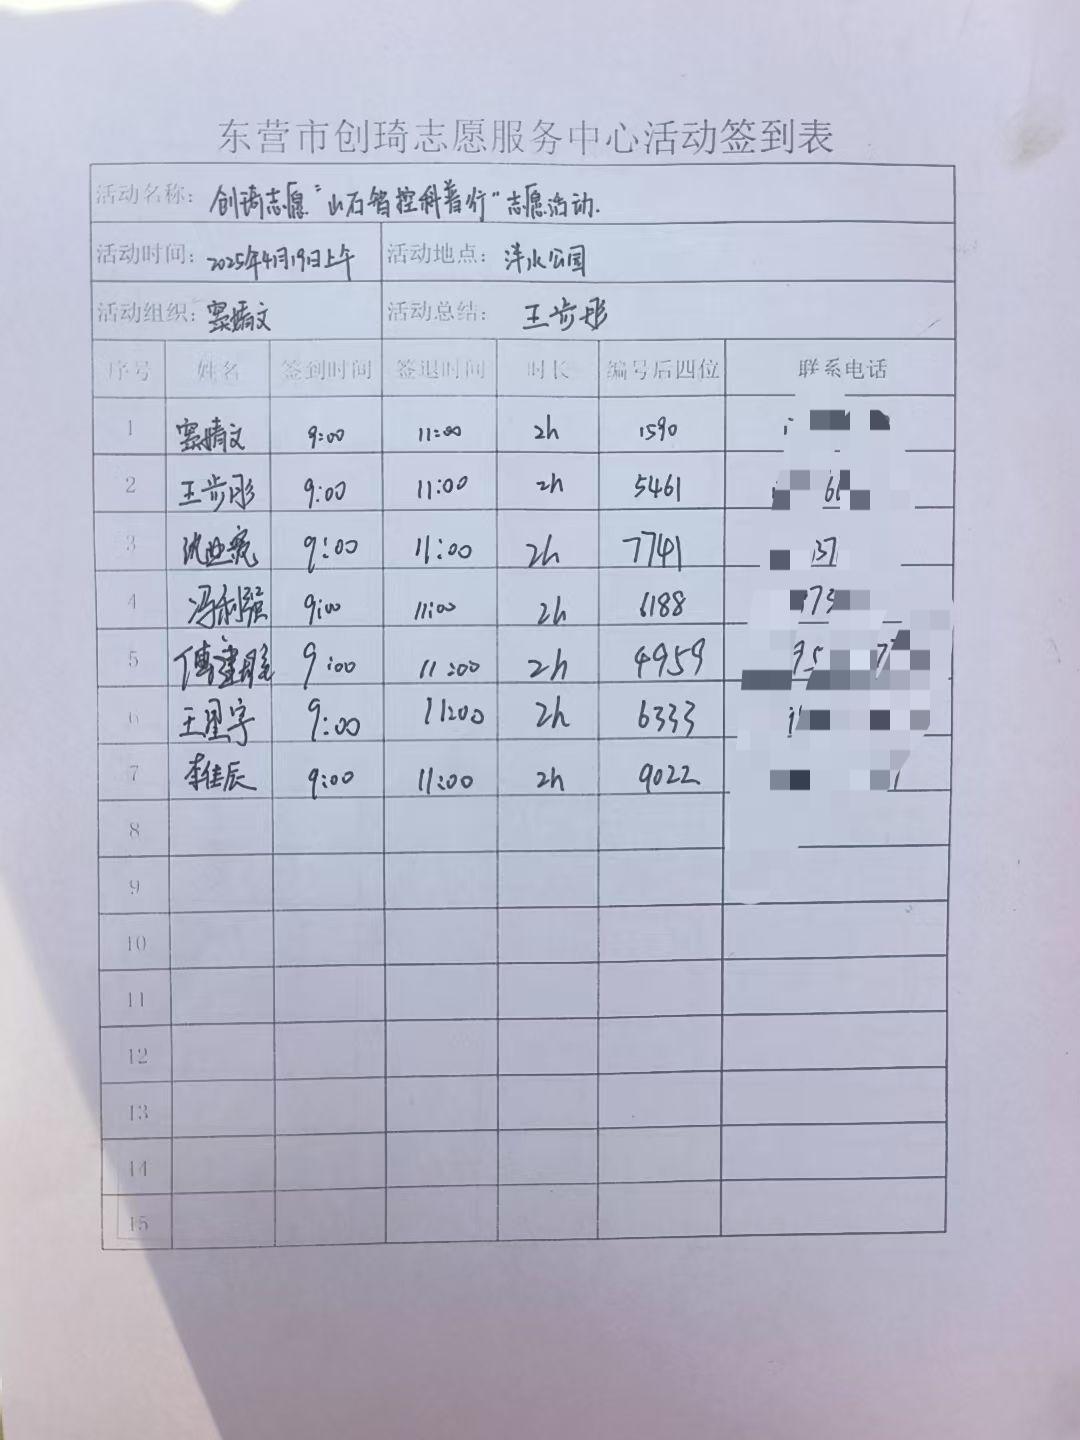 东营市创琦志愿服务中心活动签到表
活动名称: 创琦志愿“山石智控科普行”志愿活动.
活动时间: 2025年4月19日上午 活动地点: 泮水公园
活动组织: 窦婧文 活动总结: 王步彤
序号 姓名 签到时间 签退时间 时长 编号后四位 联系电话
1 窦婧文 9:00 11:00 2h 1590
2 王步彤 9:00 11:00 2h 5461
3 9:00 11:00 2h 7741
4 冯利强 9:00 11:00 2h 6188
5 9:00 11:00 2h 4959
6 王星宇 9:00 11:00 2h 6333
7 李佳辰 9:00 11:00 2h 9022
8
9
10
11
12
13
14
15